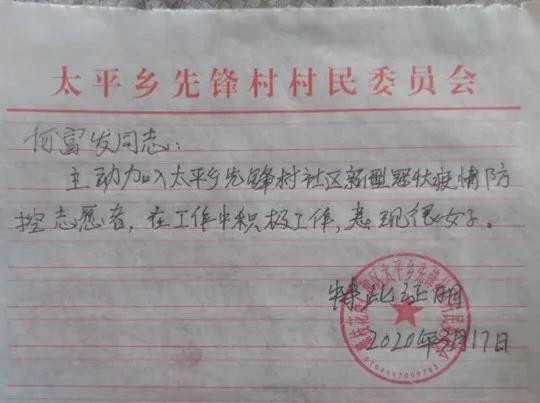 太平乡先锋村村民委员会
何富发同志：
主动加入太平乡先锋村社区新型冠状疫情防
控志愿者，在工作中积极工作，表现很好。
特此证明
2020年3月17日